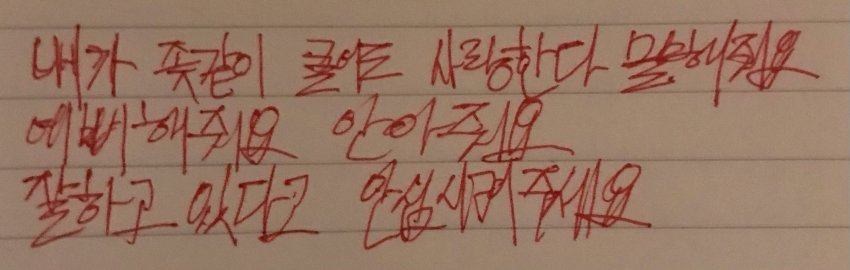 내가 좆같이 굴어도 사랑한다 말해줘요
예뻐해줘요 안아줘요
잘하고 있다고 안심시켜주세요